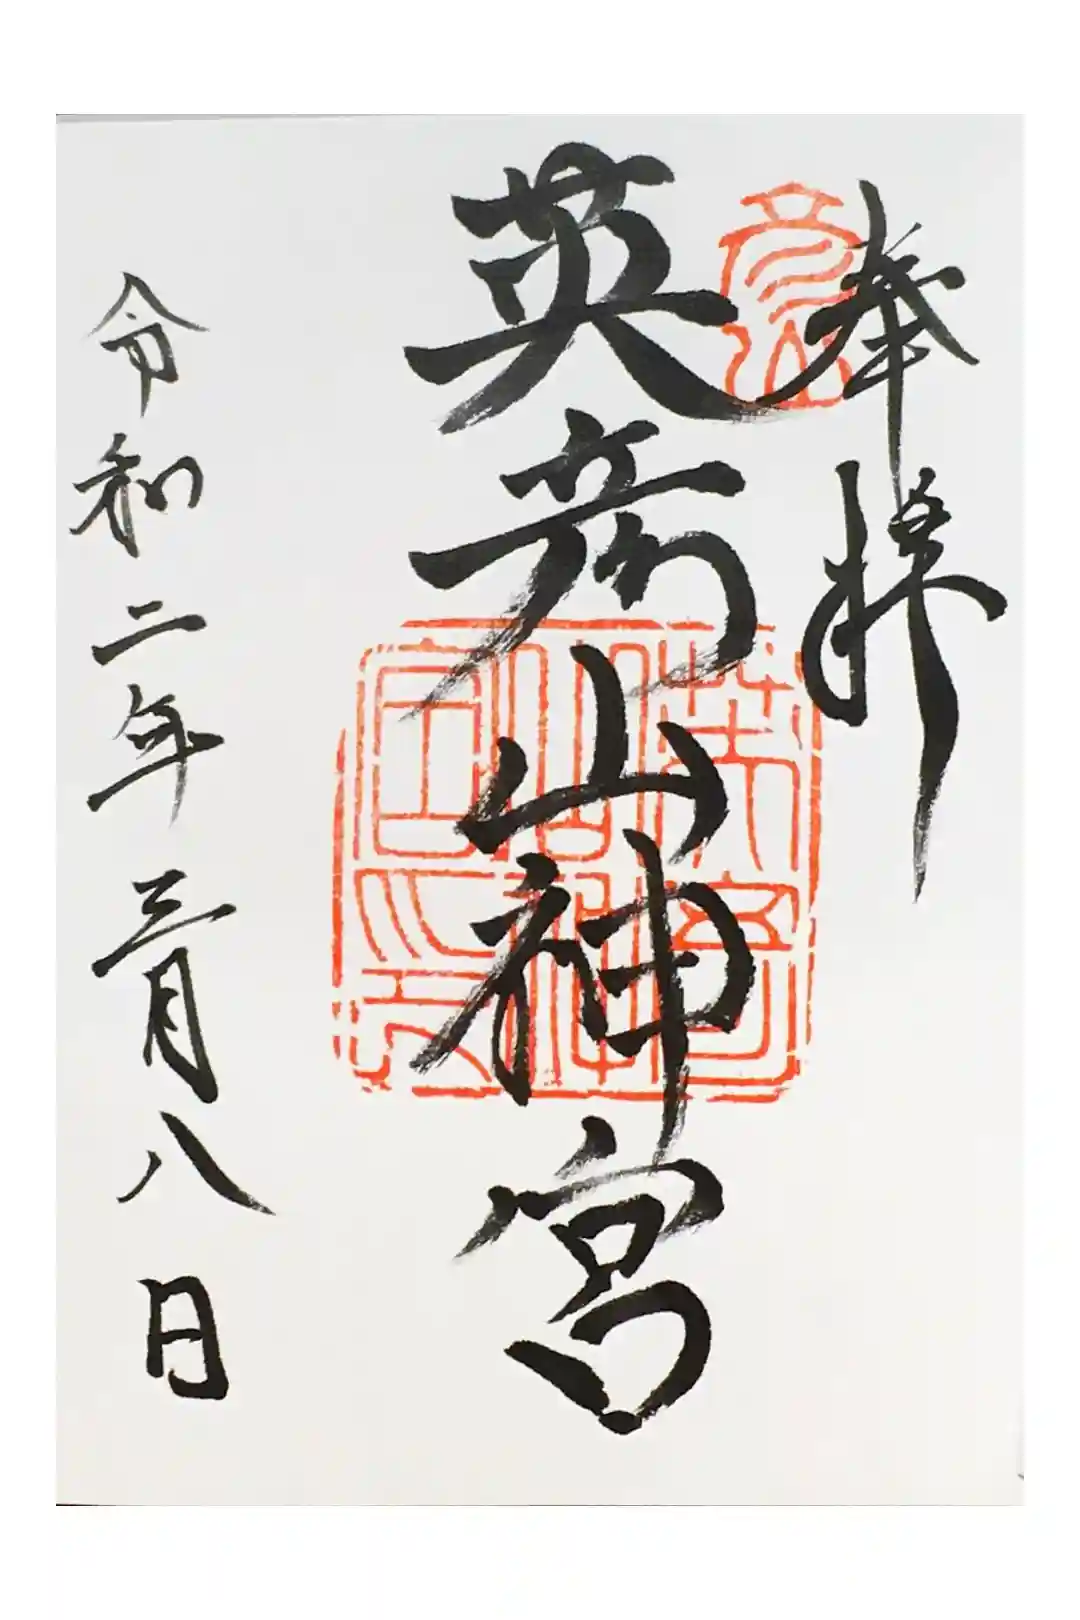 奉拝
英彦山神宮
令和二年三月八日